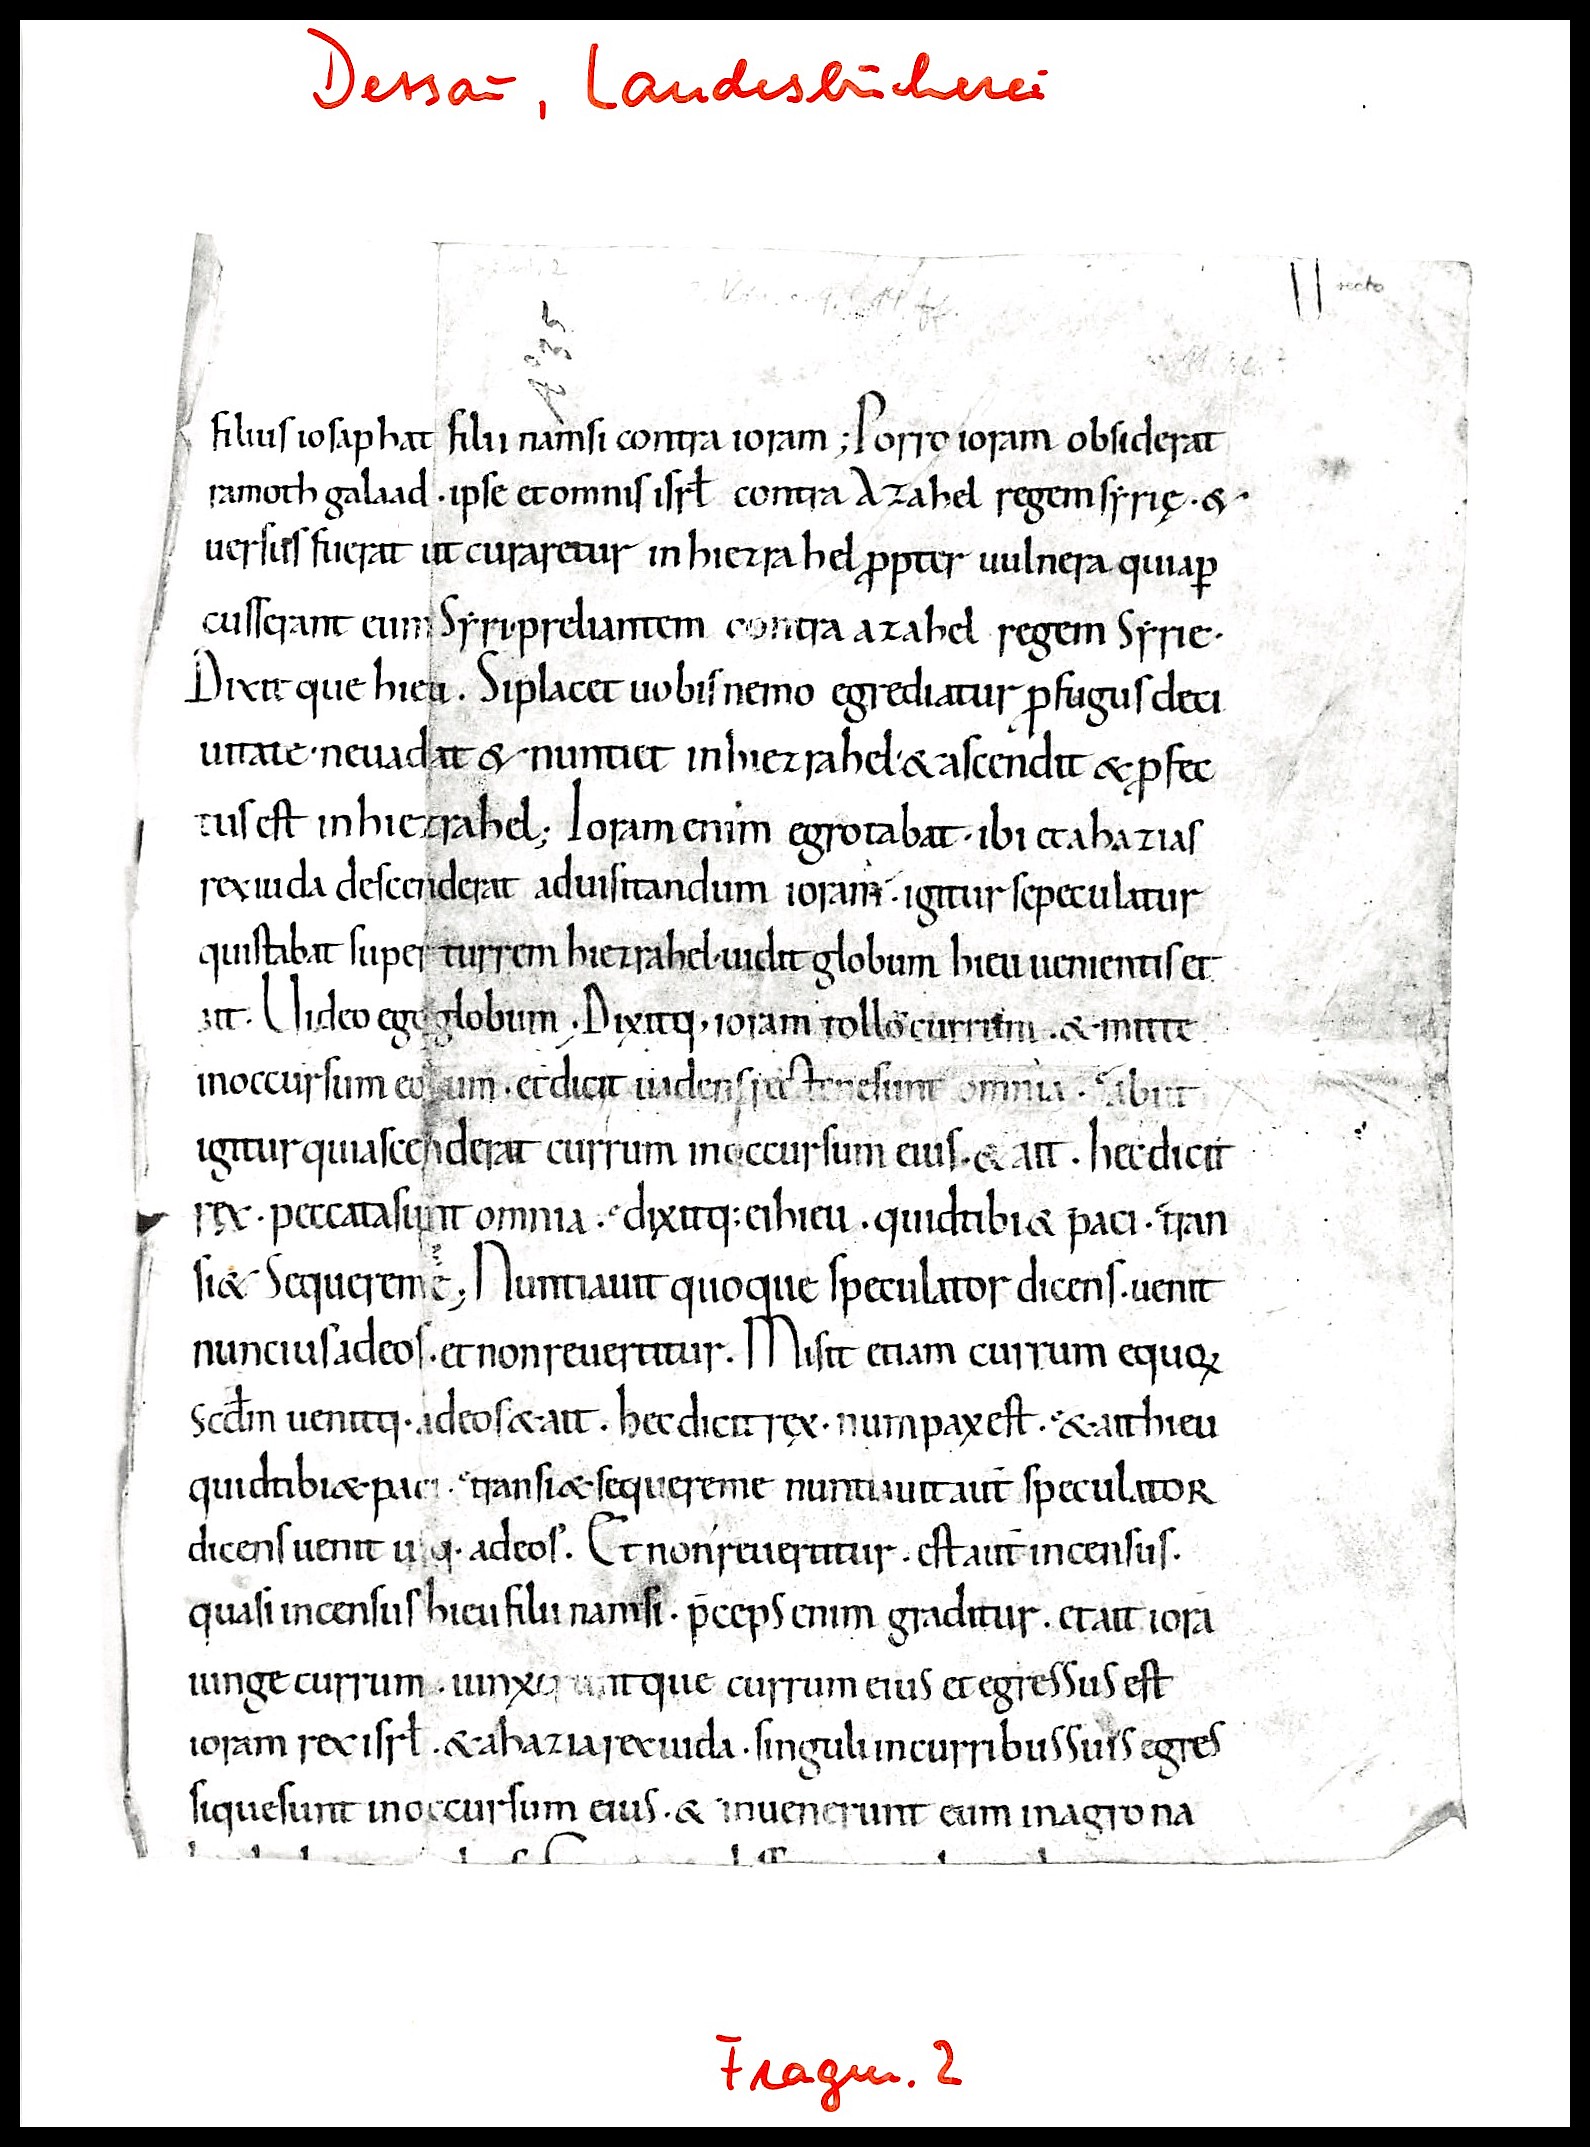 Dessau, Landesbücherei
II recto
filius iosaphat filii namsi contra ioram ; Porro ioram obsiderat
ramoth galaad · ipse et omnis isrł contra Azahel regem sẏrię · &
uersus fuerat ut curaretur in hiezrahel ꝓpter uulnera quia ꝑ
cusserant eum Sẏri · preliantem contra azahel regem Sẏrie ·
Dixit que hieu . Si placet uobis nemo egrediatur ꝓfugus de ci
uitate · ne uadat & nuntiet in hiezrahel · & ascendit & ꝓfec
tus est in hiezrahel ; Ioram enim egrotabat · ibi et ahazias
rex iuda descenderat ad uisitandum ioram · igitur sepeculatur
qui stabat super turrem hiezrahel · uidit globum hieu uenientis et
ait · Uideo ego globum . Dixitq · ioram tolle currum . & mitte
in occursum eorum . et dicit uidens recte ne sunt omnia · abiit
igitur qui ascenderat currum in occursum eius . & ait . hec dicit
ręx · peccata sunt omnia . dixitq: ei hieu . quid tibi & paci · tran
si & Sequere me ; Nuntiauit quoque speculator dicens . uenit
nuncius ad eos . et non reuertitur . Misit etiam currum equoꝝ
scdm uenitq · ad eos & ait . hec dicit ręx · num pax est . & ait hieu
quid tibi & paci . transi & sequere me nuntiauit aut̄ speculator
dicens uenit usq · ad eos . Et non reuertitur . est aut̄ incensus .
quasi incensus hieu filii namsi . p̄ceps enim graditur . et ait iorā
iunge currum . iunxeruntque currum eius et egressus est
ioram rex isrł . & ahazia rex iuda . singuli in curribus suis egres
sique sunt in occursum eius . & inuenerunt eum in agro na
Fragm. 2